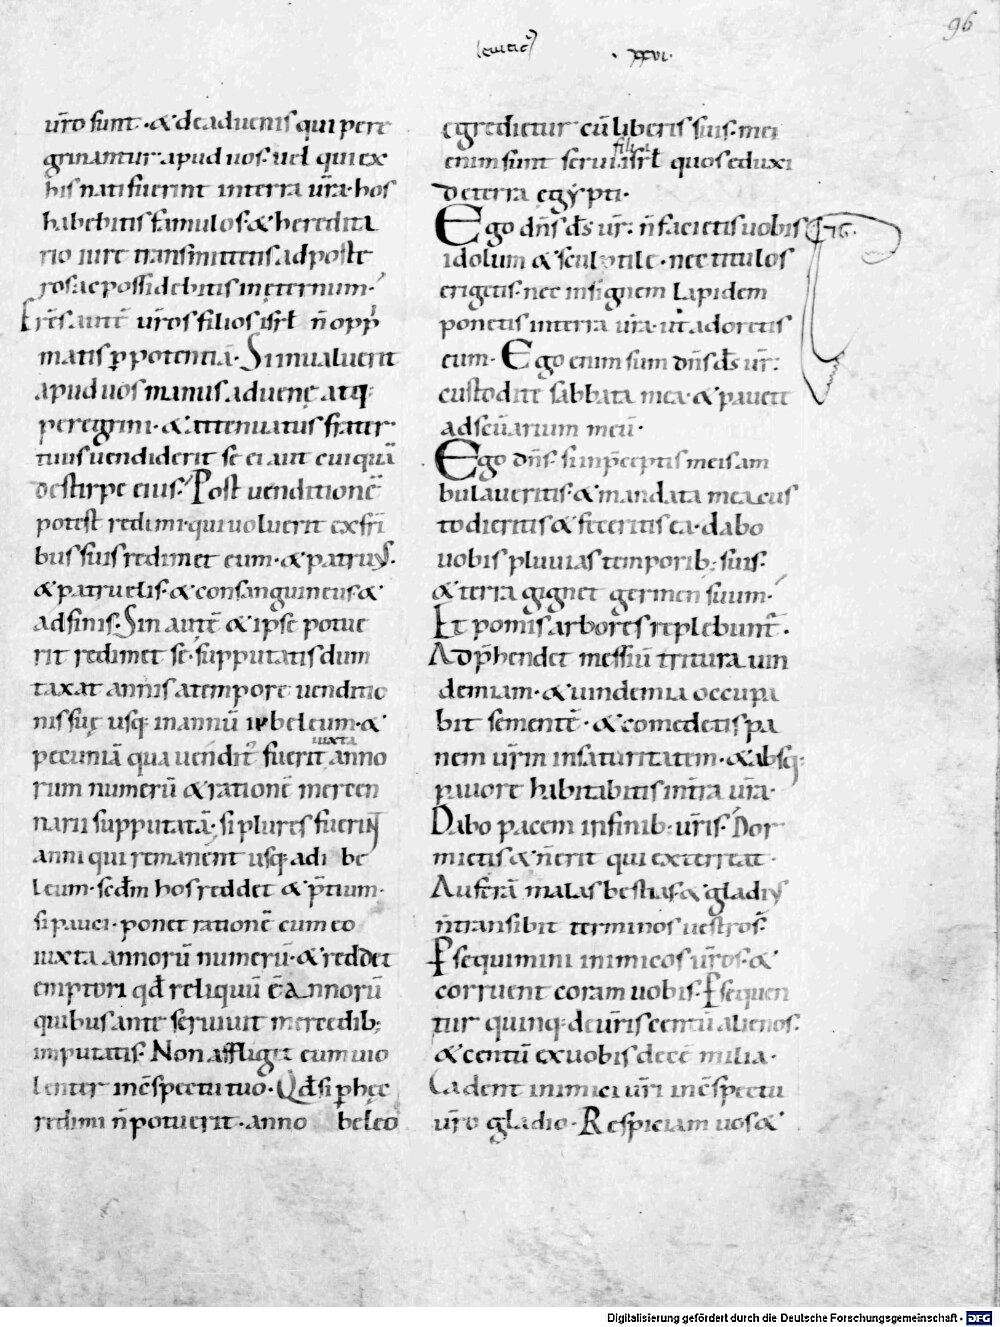 96
leuitic9
·XXVI·
ur̄o sunt · & deaduenis qui pere
grinantur apud uos· uel qui ex
his nati fuerint interra ur̄a· hos
habebitis famulos· & heredita
rio iure transmittetis adposte
ros· ac possidebitis inęternum·
Fr̄es autē ur̄os filios isr̄l n̄ opp̄
matis p̱ potentiā· Si inualuerit
apud uos manus aduenę atq;
peregrini· & attenuatus frater
tuus uendiderit se ei aut cuiquā
destirpe eius· Post uenditionē
potest redimi· qui uoluerit exfr̄i
bus suis redimet eum· & patruus·
& patruelis· & consanguineus· &
adfinis· Sin autē & ipse potue
rit redimet se· supputatis dum
taxat annis atempore uenditio
nis suę usq; inannū iubeleum· &
pecuniā qua uendit' fuerit iuxta anno
rum numerū & rationē mercen
narii supputatā· si plures fuerint
anni qui remanent usq; adi be
leum· scd̄m hos reddet & p̄tium·
si pauci· ponet rationē cum eo
iuxta annorū numerū· & reddet
emptori qd̄ reliquū ē annorū
quibus ante seruiuit mercedib;
imputatis· Non affliget eum uio
lenter incspectu tuo· Qd̄ si p̱ hęc
redimi n̄ potuerit· anno beleo
egredietur cū liberis suis· mei
enim sunt serui· filii isr̄l quos eduxi
deterra egypti·
Ego dn̄s ds̄ ur̄· n̄ facietis uobis
idolum & sculptile· nec titulos
erigetis· nec insignem lapidem
ponetis interra ur̄a· ut adoretis
eum· Ego enim sum dn̄s ds̄ ur̄·
custodite sabbata mea· & pauete
adscūarium meū·
Ego dn̄s· si inp̄ceptis meis am
bulaueritis· & mandata mea cus
todieritis & feceritis ea· dabo
uobis pluuias temporib; suis·
& terra gignet germen suum·
Et pomis arbores replebunt̄·
Adp̄hendet messiū tritura uin
demiam· & uindemia occupa
bit sementē· & comedetis pa
nem ur̄m insaturitatem· & absq;
pauore habitabitis int̄ra ur̄a·
Dabo pacem infinib; ur̄is· Dor
mietis & n̄erit qui exterreat·
Auferā malas bestias· & gladius
n̄transibit terminos uestros·
P̱sequimini inimicos ur̄os· &
corruent coram uobis· P̱sequen
tur quinq; deur̄is centū alienos·
& centū exuobis decē milia·
Cadent inimici ur̄i incspectu
ur̄o gladio· Respiciam uos &
Digitalisierung gefördert durch die Deutsche Forschungsgemeinschaft - DFG